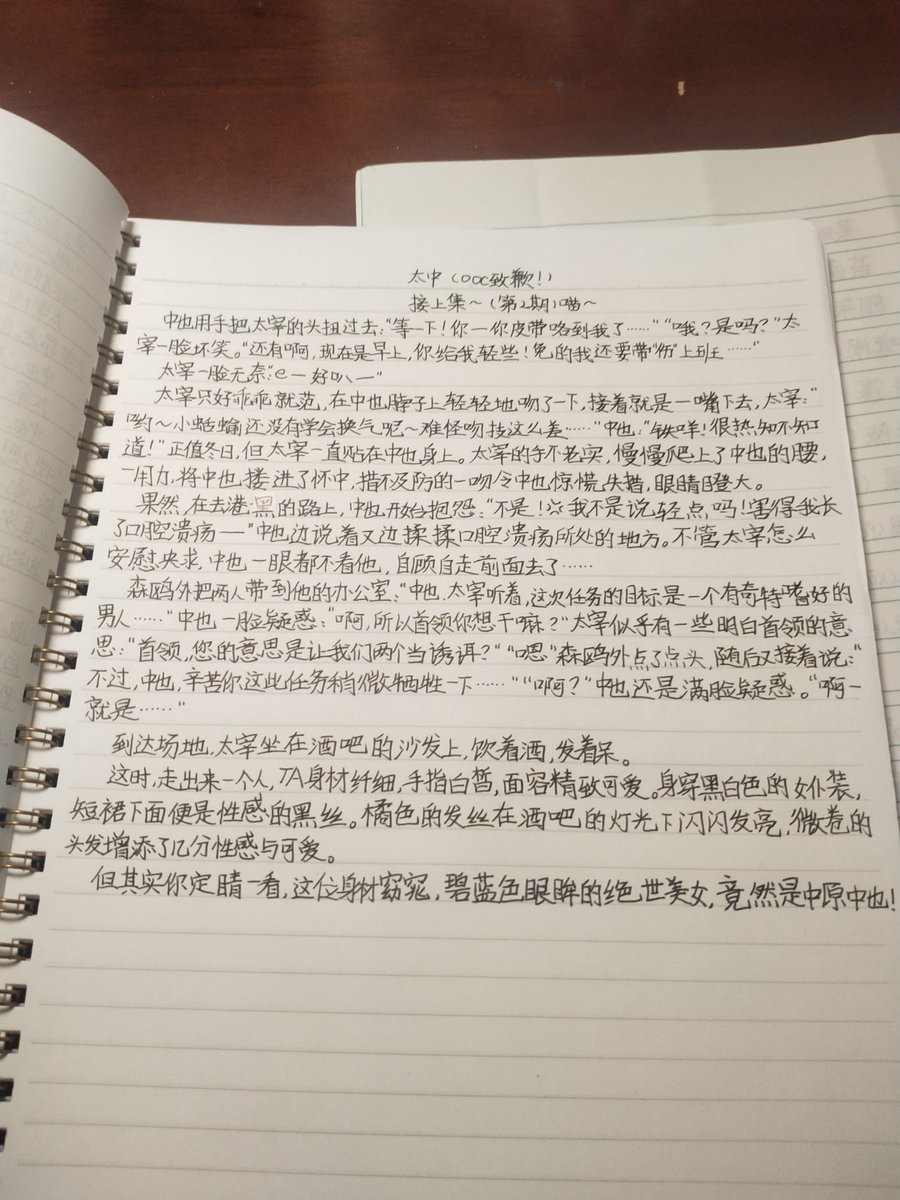 太中（OOC致歉！）
接上集～（第2期）喵～
中也用手把太宰的头扭过去：“等一下！你一你皮带咯到我了……”“哦？是吗？”太
宰一脸坏笑。“还有啊，现在是早上，你给我轻些！免的我还要带“伤”上班……”
太宰一脸无奈：“e一好叭一”
太宰只好乖乖就范，在中也脖子上轻轻地吻了一下，接着就是一嘴下去，太宰：“
哟～小蛞蝓还没有学会换气呢～难怪吻技这么差……”中也：“铁咩！很热知不知
道！”正值冬日，但太宰一直贴在中也身上。太宰的手不老实，慢慢爬上了中也的腰，
一用力，将中也搂进了怀中，措不及防的一吻令中也惊慌失措，眼睛瞪大。
果然，在去港黑的路上，中也开始抱怨：“不是！我不是说轻点吗！害得我长
了口腔溃疡——”中也边说着又边揉揉口腔溃疡所处的地方。不管太宰怎么
安慰央求，中也一眼都不看他，自顾自走前面去了……
森鸥外把两人带到他的办公室：“中也，太宰听着，这次任务的目标是一个有奇特嗜好的
男人……”中也一脸疑惑：“啊，所以首领你想干嘛？”太宰似乎有一些明白首领的意
思：“首领，您的意思是让我们两个当诱饵？”“嗯”森鸥外点了点头，随后又接着说：“
不过，中也，辛苦你这此任务稍微牺牲一下……”“啊？”中也还是满脸疑惑。“啊一
就是……”
到达场地，太宰坐在酒吧的沙发上，饮着酒，发着呆。
这时，走出来一个人，TA身材纤细，手指白皙，面容精致可爱。身穿黑白色的女仆装，
短裙下面便是性感的黑丝。橘色的发丝在酒吧的灯光下闪闪发亮，微卷的
头发增添了几分性感与可爱。
但其实你定睛一看，这位身材窈窕，碧蓝色眼眸的绝世美女，竟然是中原中也！